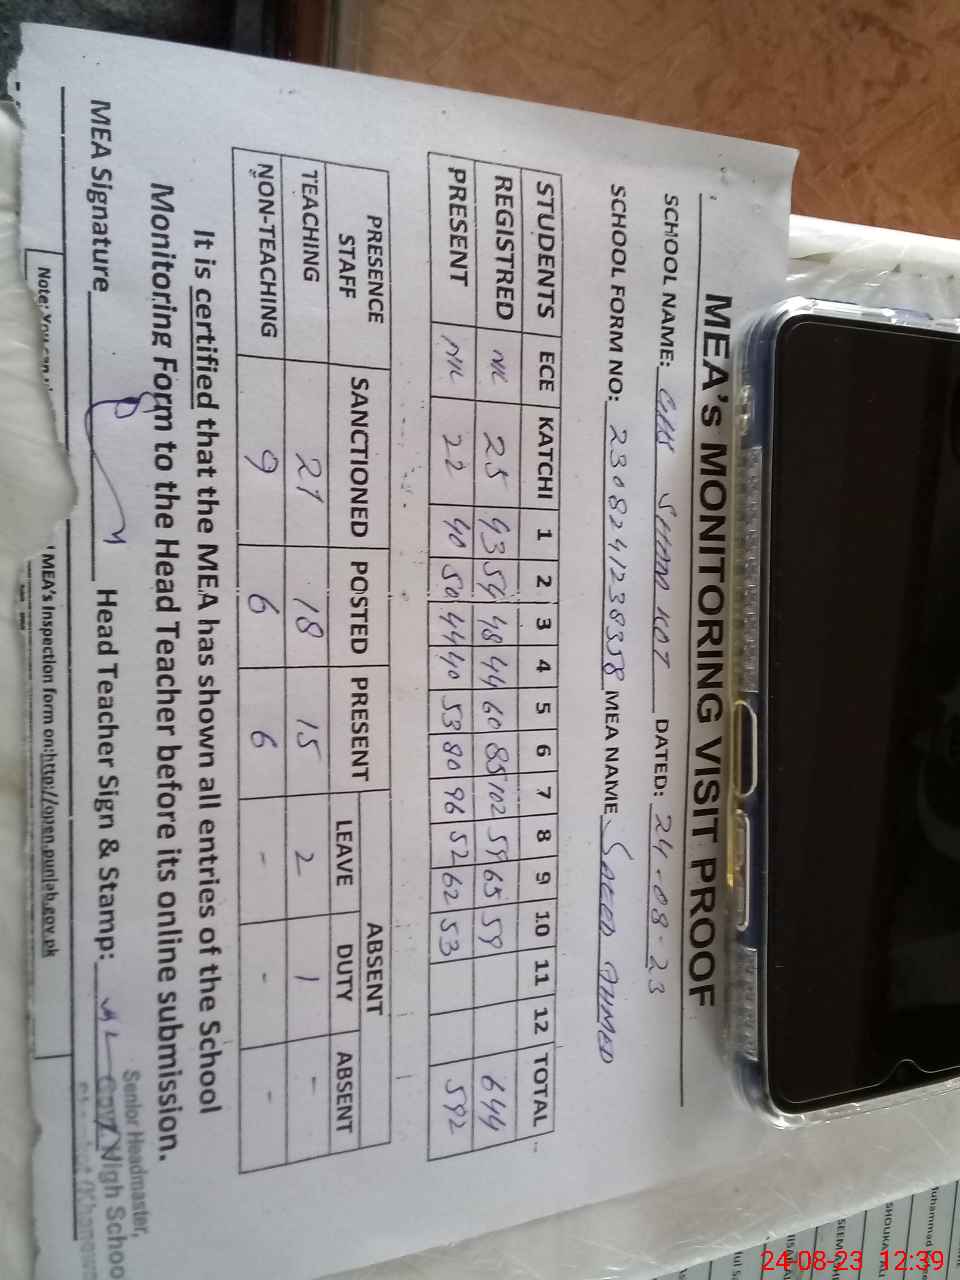 MEA's MONITORING VISIT PROOF
SCHOOL NAME: GHS SHAM KOT DATED: 24-08-23
SCHOOL FORM NO: 2308241238358 MEA NAME SAEED AHMED
STUDENTS ECE KATCHI 1 2 3 4 5 6 7 8 9 10 11 12 TOTAL
REGISTRED NIL 25 43 54 48 44 60 85 102 59 65 59 644
PRESENT NIL 22 40 50 44 40 53 80 96 52 62 53 592
PRESENCE STAFF SANCTIONED POSTED PRESENT ABSENT
LEAVE DUTY ABSENT
TEACHING 21 18 15 2 1 -
NON-TEACHING 9 6 6 - - -
It is certified that the MEA has shown all entries of the School
Monitoring Form to the Head Teacher before its online submission.
MEA Signature Head Teacher Sign & Stamp:
Senior Headmaster,
Govt. High School
Note: You can
MEA's Inspection form on:http://open.punjab.gov.pk
Muhammad
SHOUKAT ALI
24-08-23 12:39